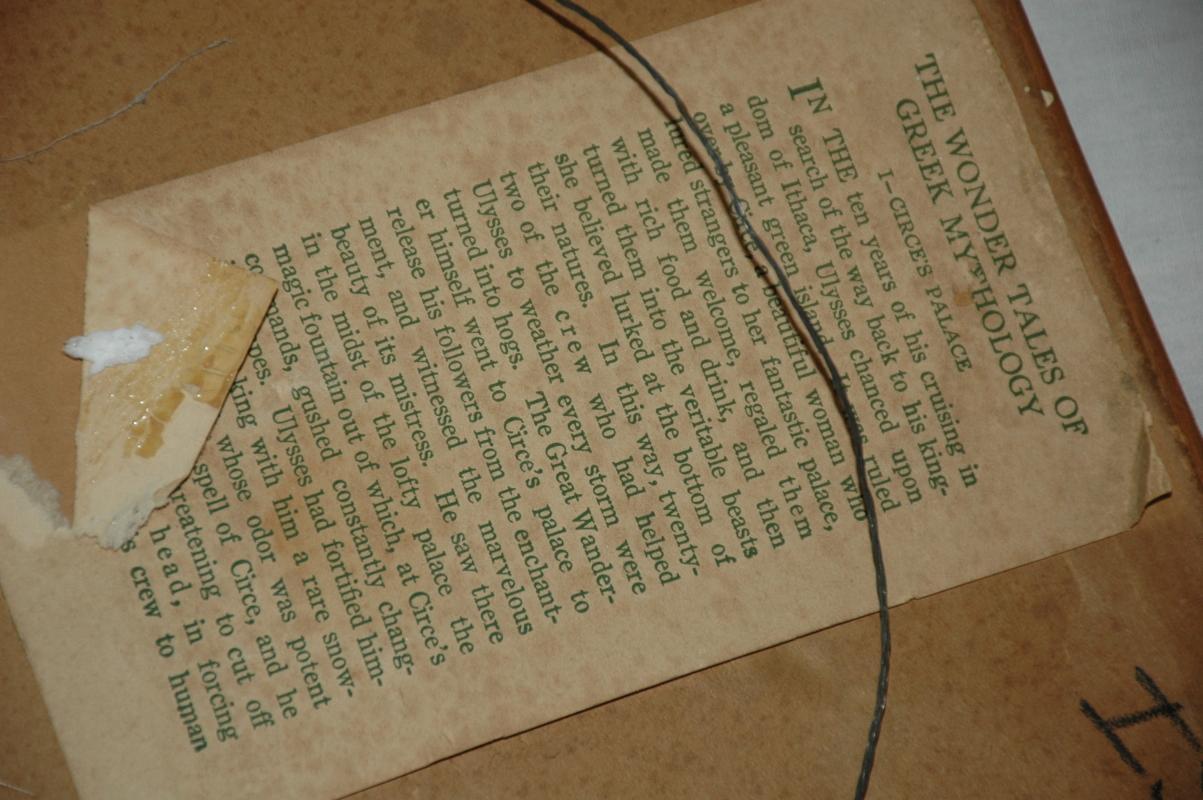 THE WONDER TALES OF
GREEK MYTHOLOGY
I—CIRCE'S PALACE
IN THE ten years of his cruising in
search of the way back to his king-
dom of Ithaca, Ulysses chanced upon
a pleasant green island. It was ruled
over by Circe, a beautiful woman who
lured strangers to her fantastic palace,
made them welcome, regaled them
with rich food and drink, and then
turned them into the veritable beasts
she believed lurked at the bottom of
their natures. In this way, twenty-
two of the crew who had helped
Ulysses to weather every storm were
turned into hogs. The Great Wander-
er himself went to Circe's palace to
release his followers from the enchant-
ment, and witnessed the marvelous
beauty of its mistress. He saw there
in the midst of the lofty palace the
magic fountain out of which, at Circe's
commands, gushed constantly chang-
Ulysses had fortified him-
king with him a rare snow-
whose odor was potent
spell of Circe, and he
reatening to cut off
head, in forcing
s crew to human
H